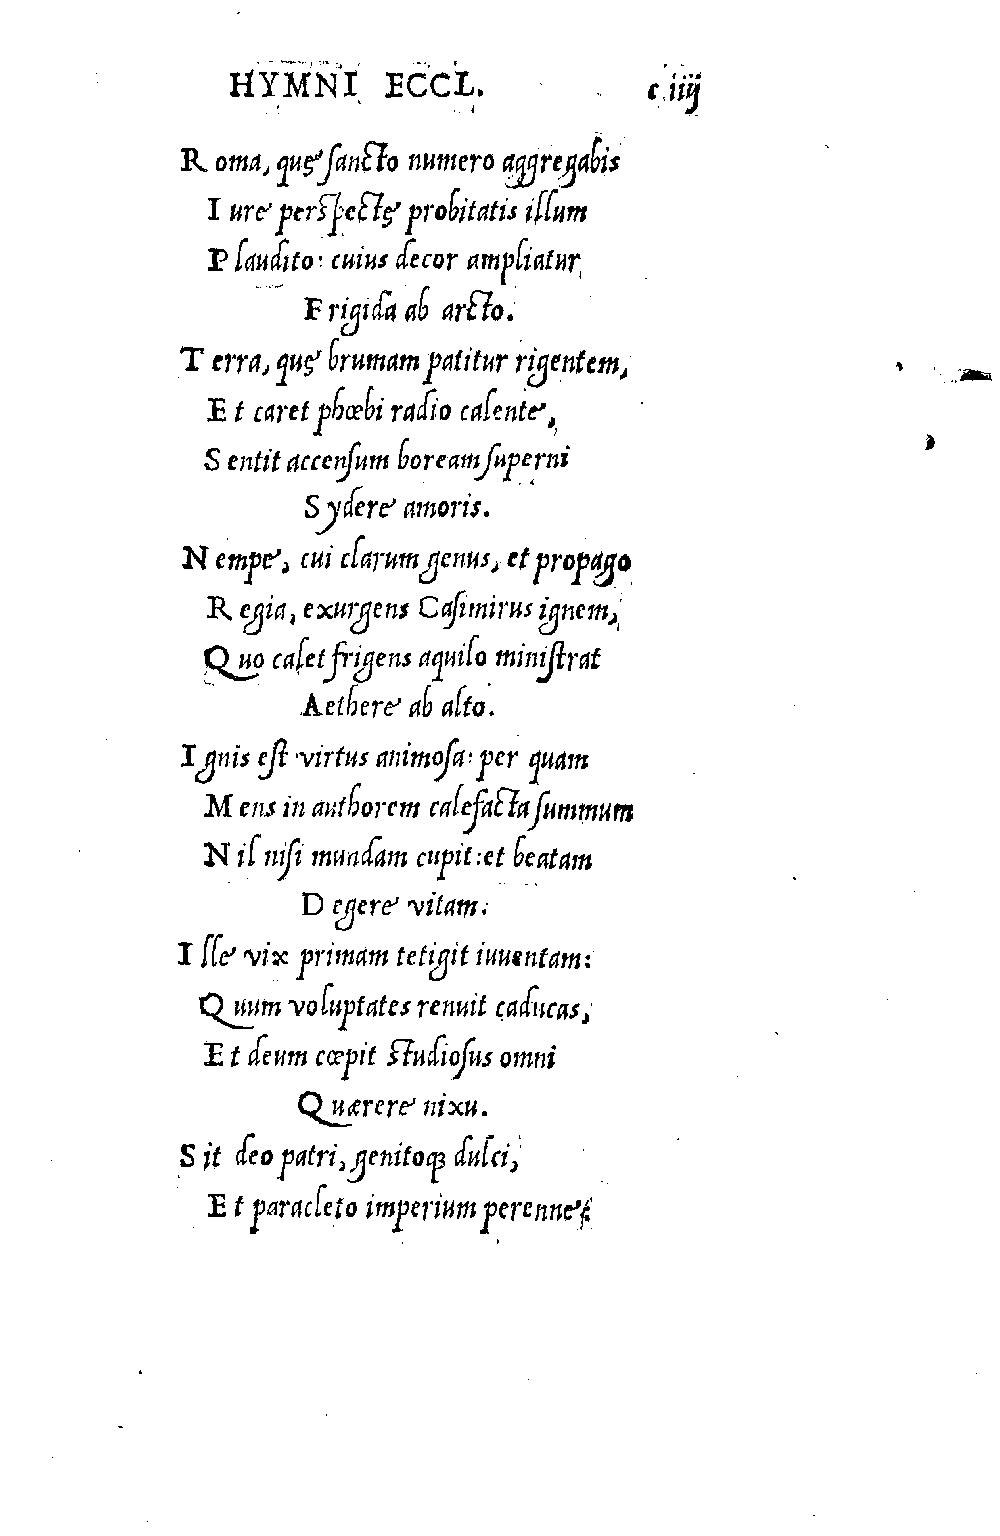 HYMNI ECCL. c iiij
Roma, quę sancto numero aggregabis
Iure perspectę probitatis illum
Plaudito: cuius decor ampliatur
Frigida ab arcto.
Terra, quę brumam patitur rigentem,
Et caret phœbi radio calente,
Sentit accensum boream superni
Sydere amoris.
Nempe, cui clarum genus, et propago
Regia, exurgens Casimirus ignem,
Quo calet frigens aquilo ministrat
Aethere ab alto.
Ignis est virtus animosa: per quam
Mens in authorem calefacta summum
Nil nisi mundam cupit: et beatam
Degere vitam.
Ille vix primam tetigit iuuentam:
Quum voluptates renuit caducas,
Et deum cœpit studiosus omni
Quærere nixu.
Sit deo patri, genitoq; dulci,
Et paracleto imperium perenne: